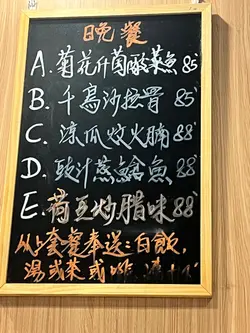 晚餐
A. 菊花片菌酸菜魚 85
B. 千島沙拉骨 85
C. 涼瓜炆火腩 88
D. 豉汁蒸鯇魚 88
E. 荷豆炒腊味 88
以上套餐奉送:白飯,
湯或菜或啡